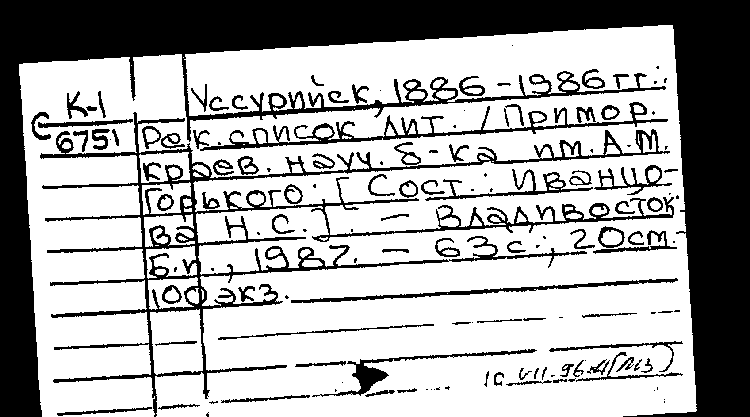 К-1 Уссурийск, 1886-1986 гг.:
6751 Рек. список лит. / Примор.
краев. науч. б-ка им. А.М.
Горького; [Сост.: Иванцо-
ва Н.С.]. - Владивосток:
Б.и., 1987. - 63 с.; 20 см.-
100 экз.